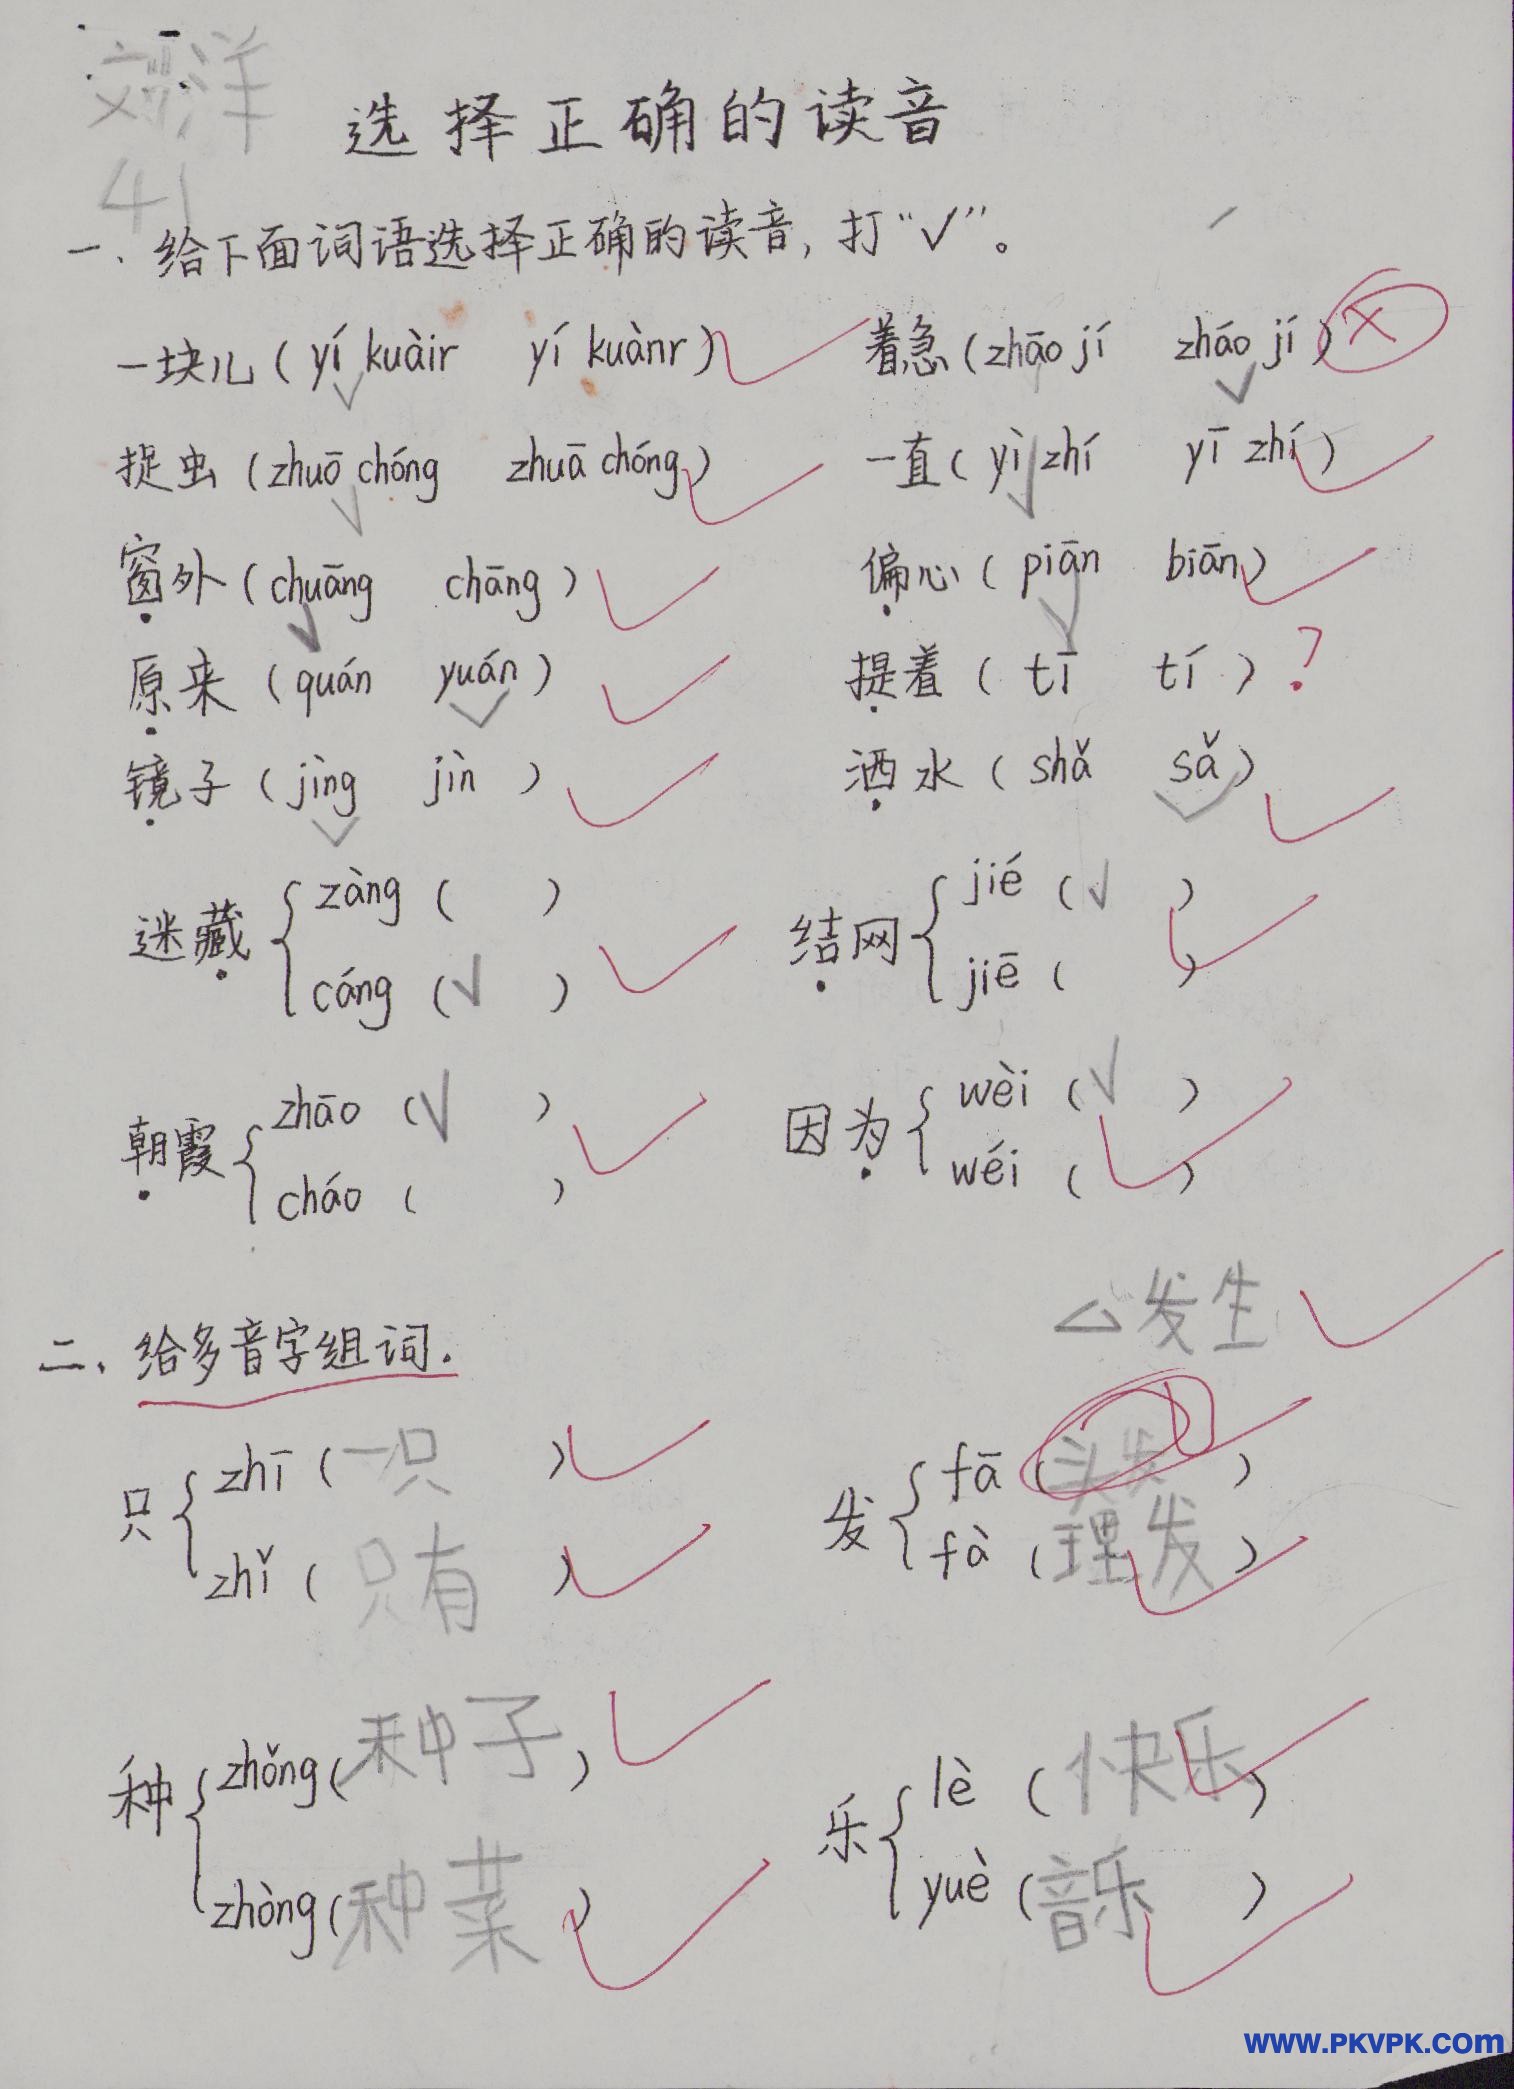 刘洋
41
选择正确的读音
一、给下面词语选择正确的读音,打“√”。
一块儿(yí kuàir yí kuànr) 着急(zhāo jí zháo jí)
捉虫(zhuō chóng zhuā chóng) 一直(yì zhí yī zhí)
窗外(chuāng chāng) 偏心(piān biān)
原来(quán yuán) 提着(tī tí)?
镜子(jìng jìn) 洒水(shǎ sǎ)
迷藏{zàng( ) 结网{jié(√)
cáng(√) jiē( )
朝霞{zhāo(√) 因为{wèi(√)
cháo( ) wéi( )
△发生
二、给多音字组词.
只{zhī(一只) 发{fā(头发)
zhǐ(只有) fà(理发)
种{zhǒng(种子) 乐{lè(快乐)
zhòng(种菜) yuè(音乐)
www.PKVPK.com